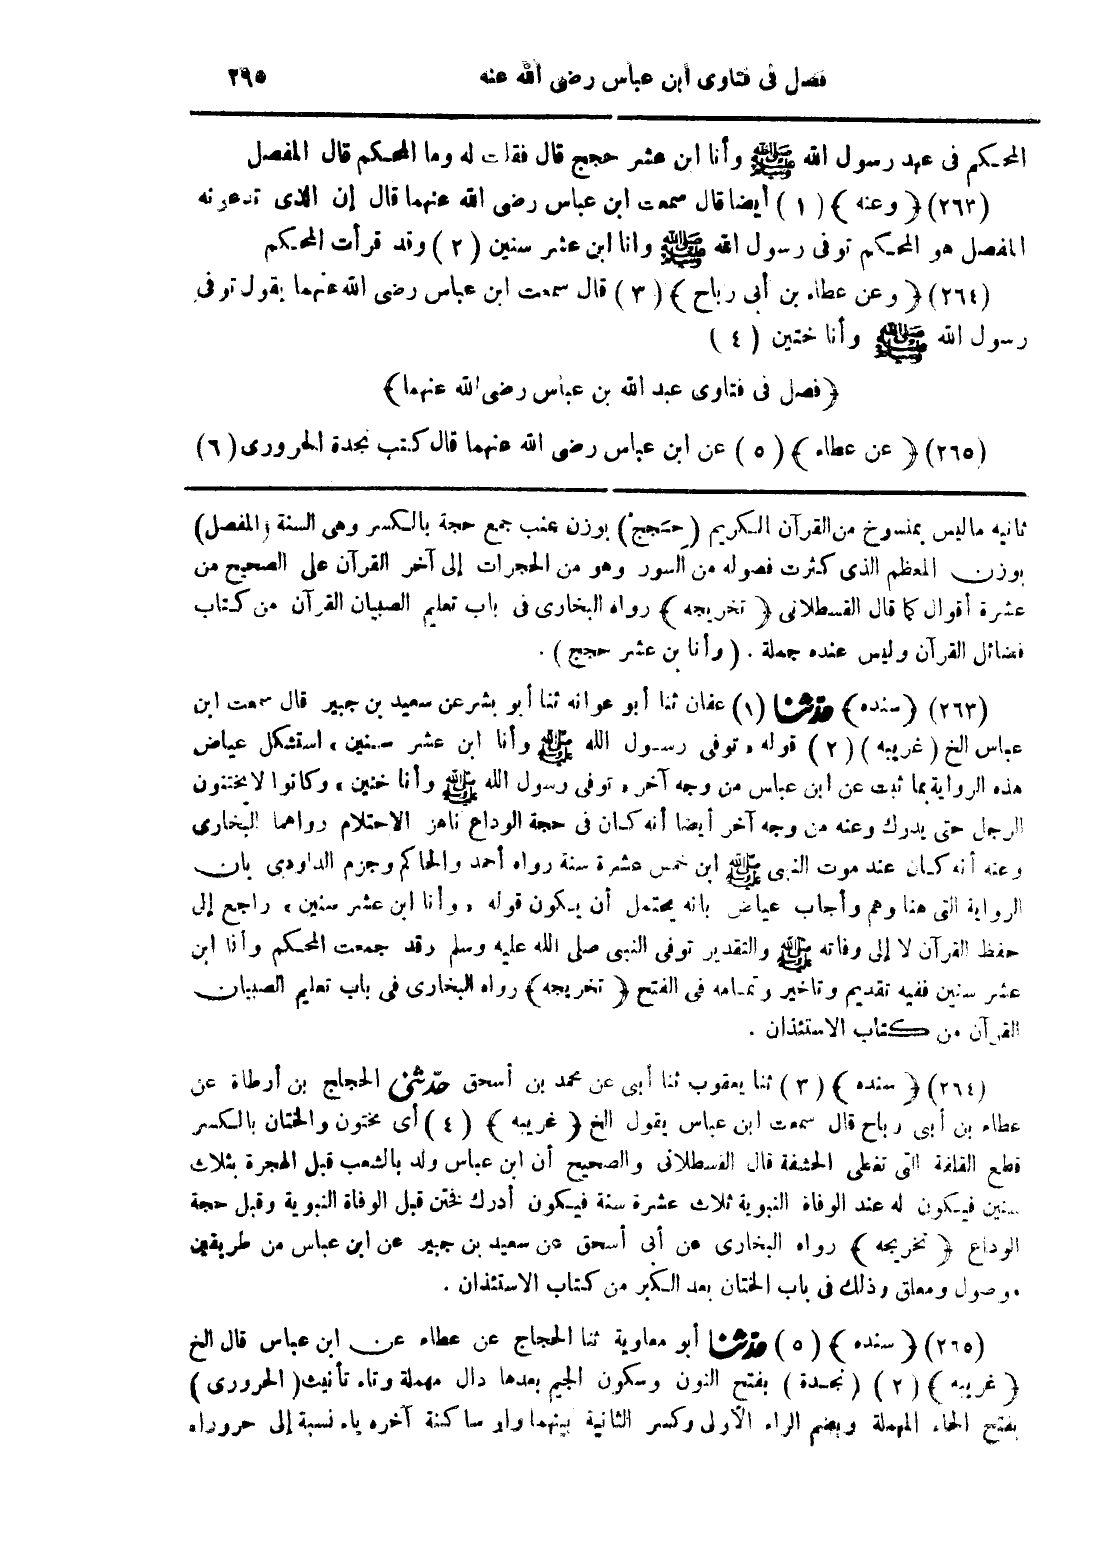 فصل فى فتاوى ابن عباس رضى الله عنه ٢٩٥
المحكم فى عهد رسول الله ﷺ وأنا ابن عشر حجج قال فقلت له وما المحكم قال المفصل
(٢٦٣) ﴿ وعنه ﴾ (١) أيضا قال سمعت ابن عباس رضى الله عنهما قال إن الذى تدعونه
المفصل هو المحكم توفى رسول الله ﷺ وانا ابن عشر سنين (٢) وقد قرأت المحكم
(٢٦٤) ﴿ وعن عطاء بن أبى رباح ﴾ (٣) قال سمعت ابن عباس رضى الله عنهما يقول توفى
رسول الله ﷺ وأنا ختين (٤)
﴿ فصل فى فتاوى عبد الله بن عباس رضى الله عنهما ﴾
(٢٦٥) ﴿ عن عطاء ﴾ (٥) عن ابن عباس رضى الله عنهما قال كتب نجدة الحرورى (٦)
ثانيه ماليس بمنسوخ من القرآن الكريم (حِجَج) بوزن عنب جمع حجة بالكسر وهى السنة (المفصل)
بوزن المعظم الذى كثرت فصوله من السور وهو من الحجرات إلى آخر القرآن على الصحيح من
عشرة أقوال كما قال القسطلانى ﴿ تخريجه ﴾ رواه البخارى فى باب تعليم الصبيان القرآن من كتاب
فضائل القرآن وليس عنده جملة . (وأنا بن عشر حجج) .
(٢٦٣) ﴿ سنده ﴾ حدّثنا (١) عفان ثنا أبو عوانه ثنا أبو بشر عن سعيد بن جبير قال سمعت ابن
عباس الخ ( غريبه ) (٢) قوله « توفى رسول الله ﷺ وأنا ابن عشر سنين » استشكل عياض
هذه الرواية بما ثبت عن ابن عباس من وجه آخر « توفى رسول الله ﷺ وأنا ختين » وكانوا لا يختنون
الرجل حتى يدرك وعنه من وجه آخر أيضا أنه كان فى حجة الوداع ناهز الاحتلام رواهما البخارى
وعنه أنه كان عند موت النبى ﷺ ابن خمس عشرة سنة رواه أحمد والحاكم وجزم الداودى بان
الرواية التى هنا وهم وأجاب عياض بانه يحتمل أن يكون قوله « وأنا ابن عشر سنين » راجع إلى
حفظ القرآن لا إلى وفاته ﷺ والتقدير توفى النبى صلى الله عليه وسلم وقد جمعت المحكم وأنا ابن
عشر سنين ففيه تقديم وتاخير وتمامه فى الفتح ﴿ تخريجه ﴾ رواه البخارى فى باب تعليم الصبيان
القرآن من كتاب الاستئذان .
(٢٦٤) ﴿ سنده ﴾ (٣) ثنا يعقوب ثنا أبى عن محمد بن أسحق حدّثنى الحجاج بن أرطاة عن
عطاء بن أبى رباح قال سمعت ابن عباس يقول الخ ﴿ غريبه ﴾ (٤) أى مختون والختان بالكسر
قطع القلفة التى تغطى الحشفة قال القسطلانى والصحيح أن ابن عباس ولد بالشعب قبل الهجرة بثلاث
سنين فيكون له عند الوفاة النبوية ثلاث عشرة سنة فيكون أدرك فختن قبل الوفاة النبوية وقبل حجة
الوداع ﴿ تخريجه ﴾ رواه البخارى عن أبى أسحق عن سعيد بن جبير عن ابن عباس من طريقين
موصول ومعلق وذلك فى باب الختان بعد الكبر من كتاب الاستئذان .
(٢٦٥) ﴿ سنده ﴾ (٥) حدّثنا أبو معاوية ثنا الحجاج عن عطاء عن ابن عباس قال الخ
﴿ غريبه ﴾ (٢) (نجدة) بفتح النون وسكون الجيم بعدها دال مهملة وتاء تأنيث (الحرورى)
بفتح الحاء المهملة وبضم الراء الأولى وكسر الثانية بينهما واو ساكنة آخره ياء نسبة إلى حروراء